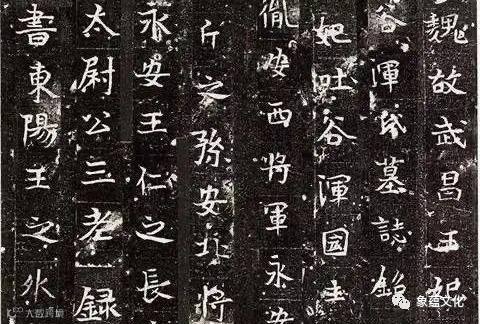 魏故武昌王妃
谷渾氏墓誌銘
妃吐谷渾國主
胤安西將軍永安
斤之孫安北將
永安王仁之長
太尉公三老錄
書東陽王之外
象蕴文化
大数跨境